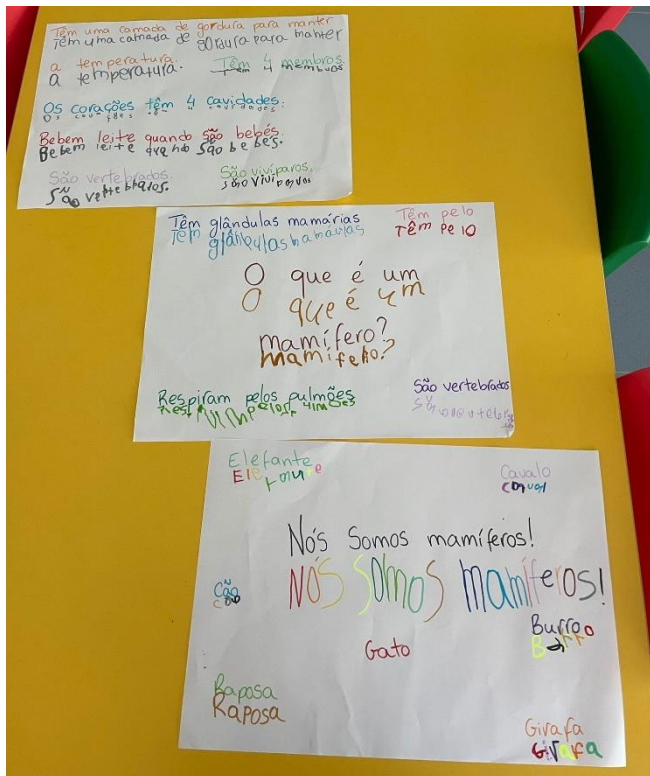 Têm uma camada de gordura para manter
Têm uma camada de gordura para manter
a temperatura.
a temperatura.
Têm 4 membros.
Têm 4 membros
Os corações têm 4 cavidades.
Bebem leite quando são bebés.
Bebem leite quando são bebés.
São vertebrados.
São vertebrados.
São vivíparos.
São vivíparos
Têm glândulas mamárias
Têm glândulas mamárias
Têm pelo
Têm pelo
O que é um
O que é um
mamífero?
mamífero?
Respiram pelos pulmões
São vertebrados
Elefante
Elefante
Cavalo
Nós somos mamíferos!
Nós somos mamíferos!
Cão
Cão
Gato
Burro
Raposa
Raposa
Girafa
Girafa